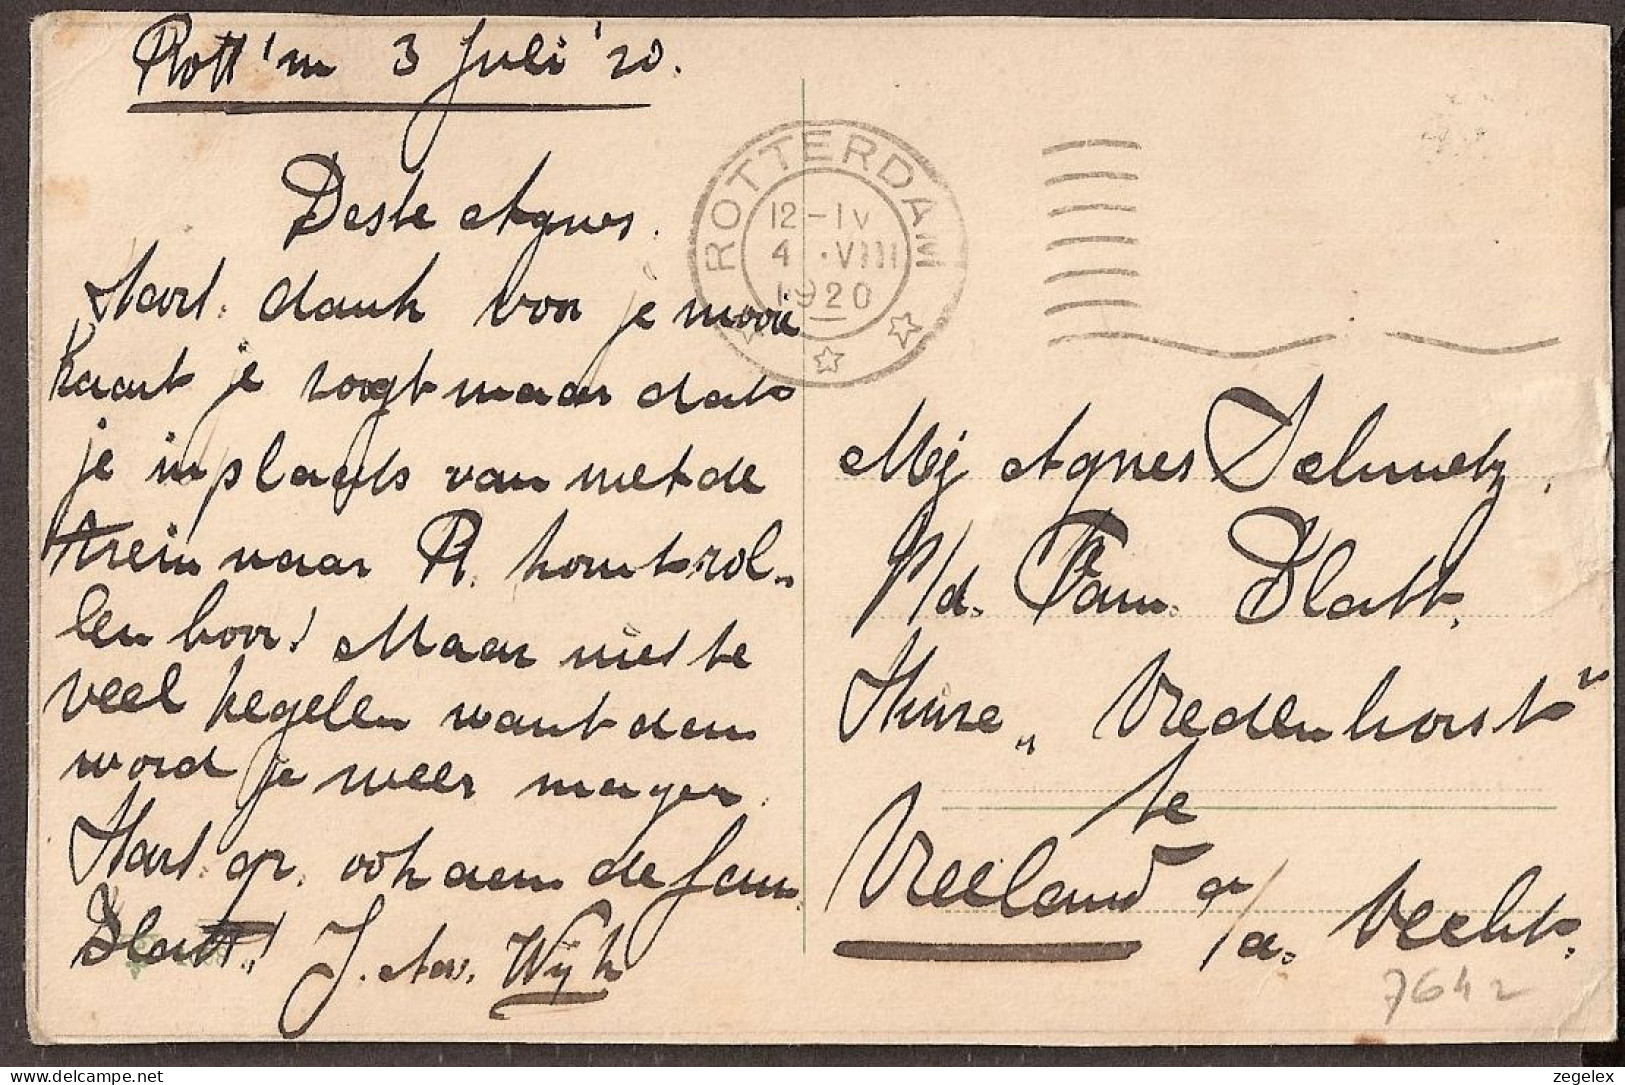 Rott'm 3 Juli '20.
Beste Agnes.
Hart. dank voor je mooie
kaart je zorgt maar dat
je inplaats van met de
trein naar R. komt rol-
len hoor! Maar niet te
veel kegelen want dan
word je weer mager.
Hart. gr. ook aan de fam.
Blatt! J. v. Wijk
ROTTERDAM
12-IV
4 .VIII
1920
Mej Agnes Schmetz.
p/d. Fam. Blatt.
Huize „Vredenhorst"
te
Vreeland a/d. Vecht.
7642
zegelex